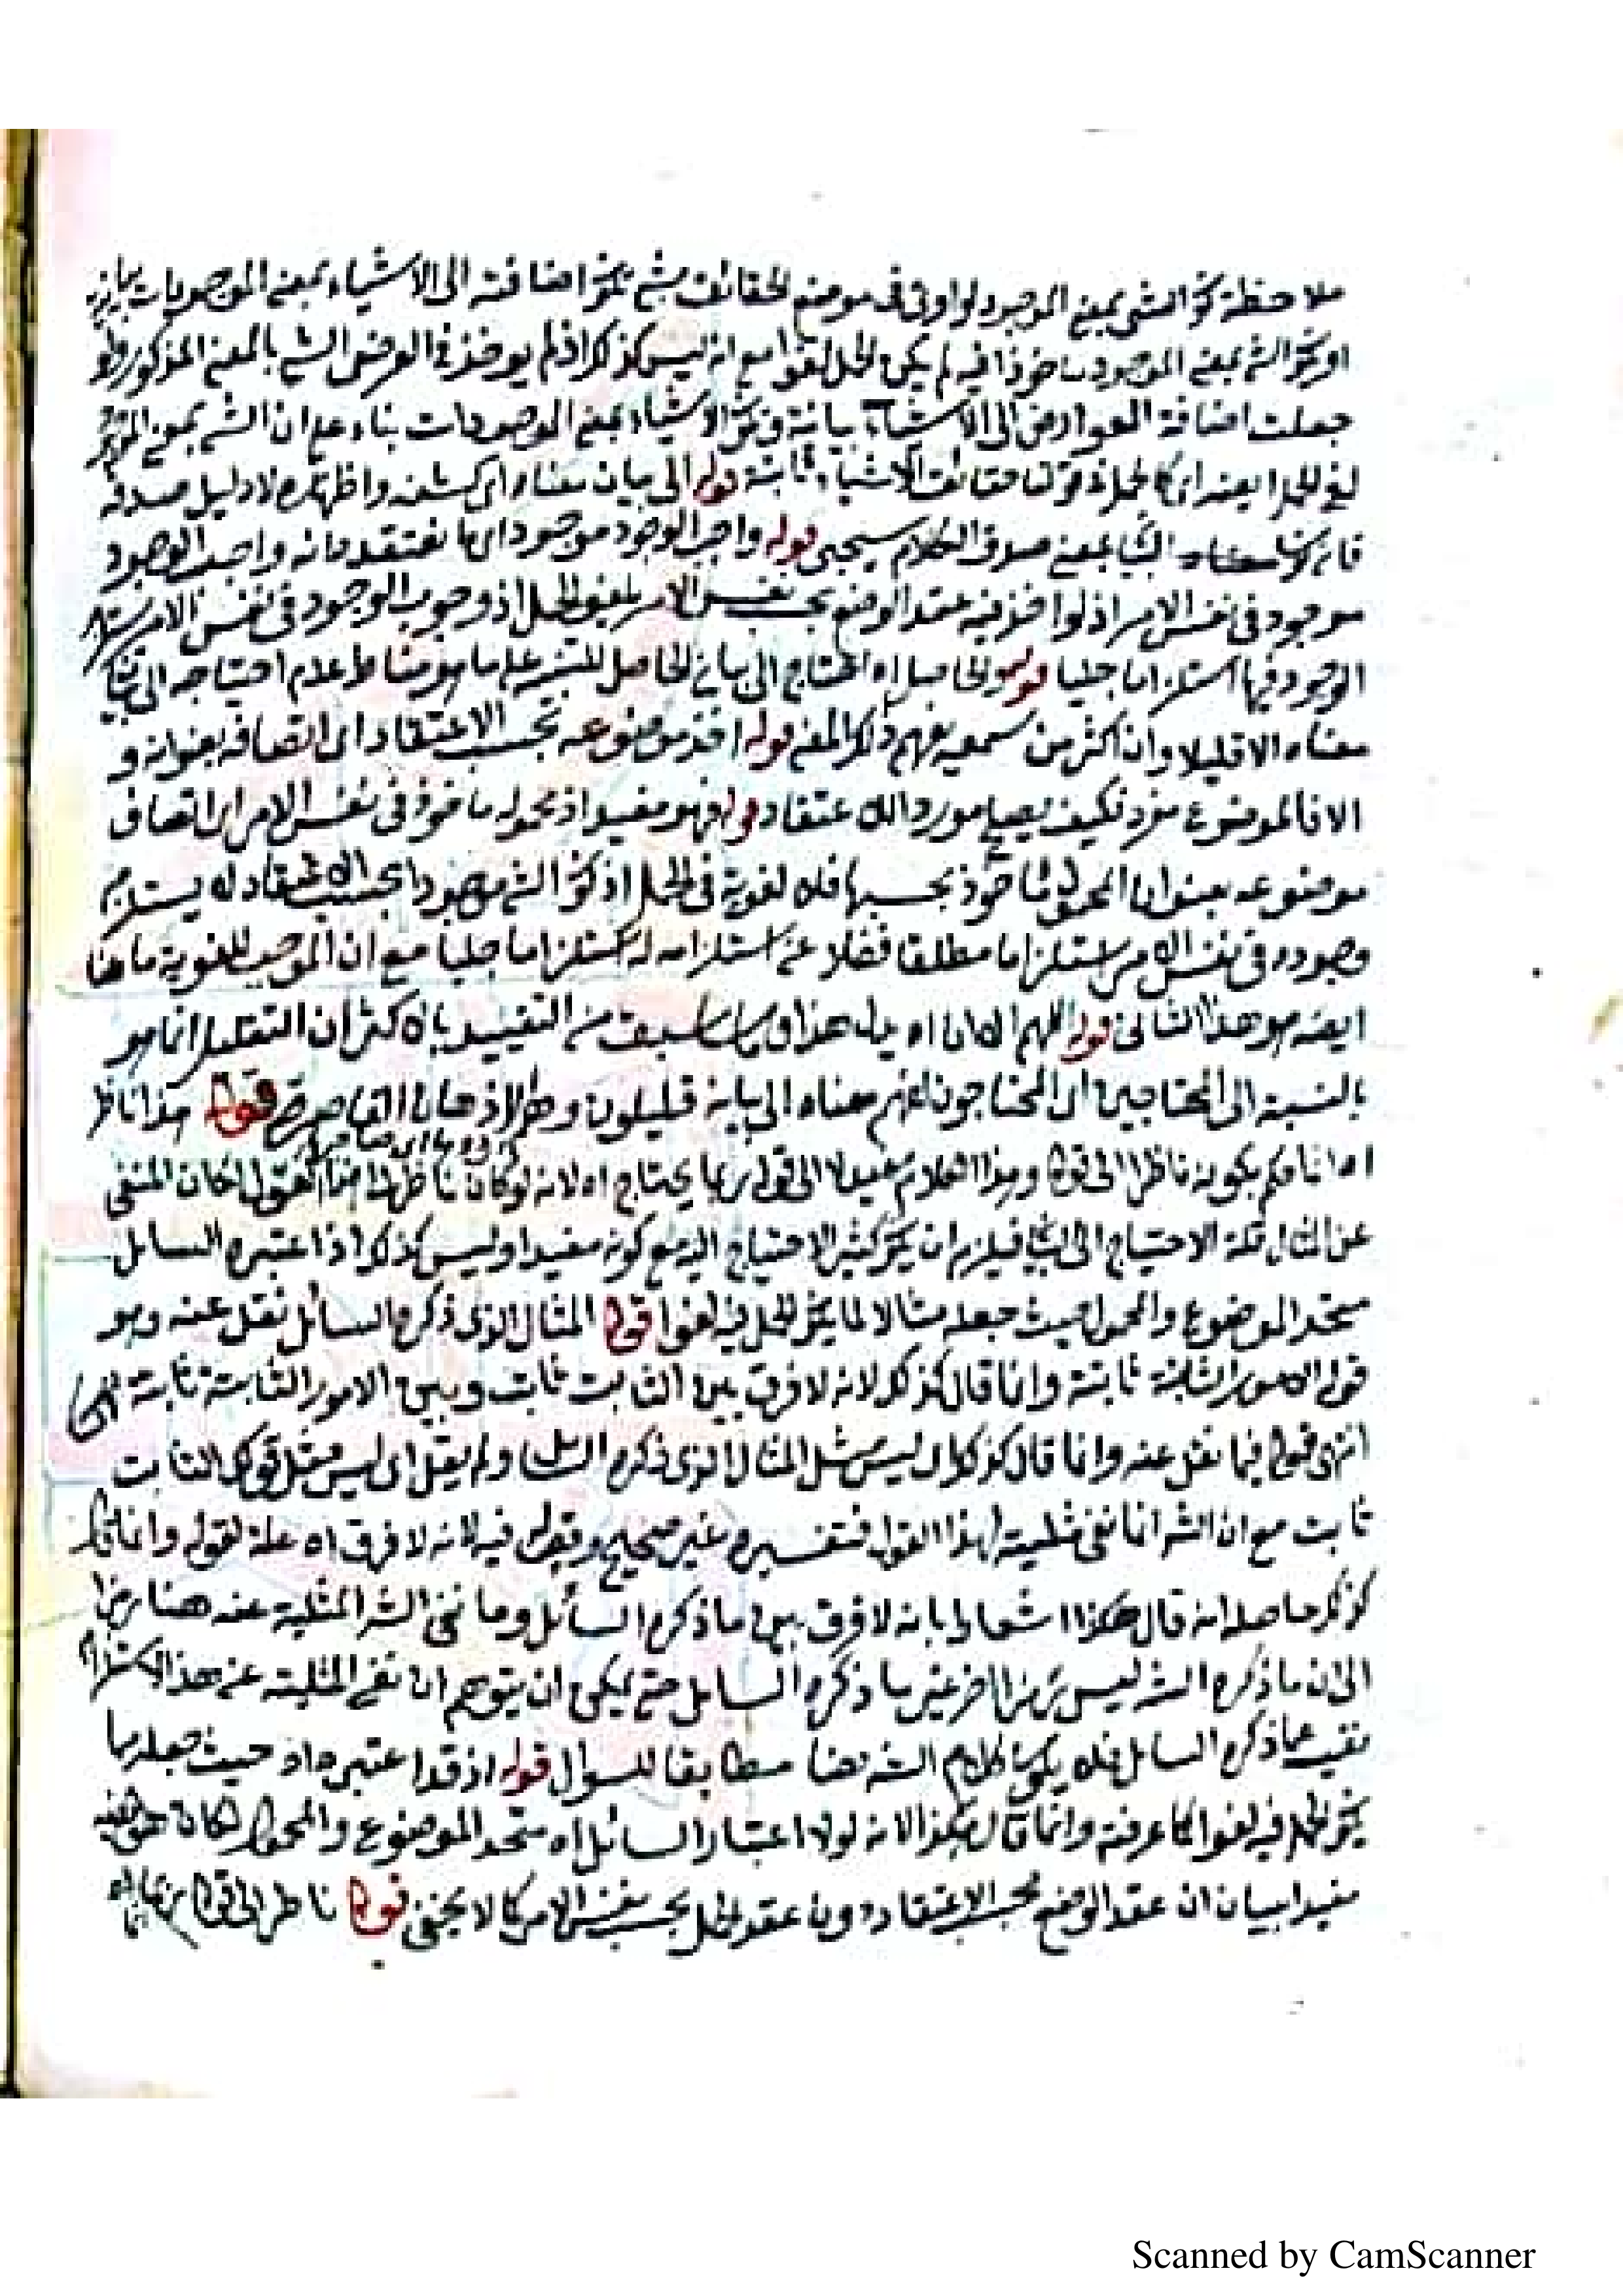 ملاحظة كون الشئ بمعنى الموجود لو اوتى فى موضع الحقائق بشئ يكون اضافته الى الاشياء بمعنى الموجودات بيانية
او يكون الشئ بمعنى الموجود ماخوذا فيه لم يكن الحمل لغوا مع انه ليس كذلك اذ لم يوخذ فى العوارض الشئ بالمعنى المذكور ولو
جعلت اضافة العوارض الى الاشياء بيانية وكون الاشياء بمعنى الموجودات بناء على ان الشئ بمعنى الموجود
لغى الحمل ايضا كالحمل فى قولنا حقائق الاشياء ثابتة قوله الى بيان معناه اى كشفه واظهاره لا دليل صدقه
فان البيان بمعنى صدق الكلام سيجئ قوله واجب الوجود موجود اى ما نعتقد انه واجب الوجود
موجود فى نفس الامر اذ لو اخذ فيه عقد الوضع بحسب نفس الامر يلغو الحمل اذ وجوب الوجود فى نفس الامر يستلزم
الوجود فيها استلزاما جليا قوله والحاصل اه احتاج الى بيان الحاصل للتنبيه على ما هو مناط عدم احتياجه الى بيان
معناه الا قليلا وان اكثر من سمعه يفهم ذلك المعنى قوله اخذ موضوعه بحسب الاعتقاد اى اتصافه بعنوانه و
الا فالموضوع مفرد فكيف يصلح مورد الاعتقاد قوله فهو مفيد اذ محموله ماخوذ فى نفس الامر اى اتصاف
موضوعه بعنوان المحمول ماخوذ بحسبها فلا لغوية فى الحمل اذ كون الشئ موجودا بحسب الاعتقاد لا يستلزم
وجوده فى نفس الامر استلزاما مطلقا فضلا عن استلزامه له استلزاما جليا مع ان الموجب للغوية ما هنا
ايضا هو هذا الثانى قوله اللهم الا ان اه يدل هذا وما سبق من التقييد بالاكثر ان التقليل انما هو
بالنسبة الى المحتاجين اى المحتاجون فى فهم معناه الى بيانه قليلون وهم الاذهان القاصرة قوله هذا ناظر
اه انما حكم بكونه ناظرا الى قوله وهذا الكلام مفيد لا الى قوله ربما يحتاج اه لانه لو كان ناظرا الى هذا القول لكان المنفى
عن المثال قلة الاحتياج الى البيان فيلزم ان يكون كثير الاحتياج اليه مع كونه مفيدا وليس كذلك اذا اعتبره السائل
متحد الموضوع والمحمول حيث جعله مثالا لما يكون الحمل فيه لغوا قوله المثال الذى ذكره السائل نقل عنه وهو
قوله الامور الثابتة ثابتة وانما قال كذلك لانه لا فرق بين الثابت ثابت وبين الامور الثابتة ثابتة
انتهى قوله فيما نقل عنه وانما قال كذلك اى ليس مثل المثال الذى ذكره السائل ولم يقل اى ليس مثل قولك الثابت
ثابت مع ان الشه انما نفى مثليته لهذا القول فتفسيره غير صحيح وقوله فيه لانه لا فرق اه علة لقوله وانما قال
كذلك حاصله انه قال هكذا اشعارا بانه لا فرق بين ما ذكره السائل وما نفى الشه المثلية عنه هنا رمزا
الى ان ما ذكره الشه ليس امرا اخر غير ما ذكره السائل حتى يمكن ان يتوهم ان نفى المثلية عن هذا لا يستلزم
نفيه عما ذكره السائل فلا يكون كلام الشه نصا مطابقا للسؤال قوله اذ قد اعتبره اه حيث جعله مما
يكون الحمل فيه لغوا كما عرفته وانما قال هكذا لانه لولا اعتبار السائل اه متحد الموضوع والمحمول لكان
مفيدا ببيان ان عقد الوضع بحسب الاعتقاد دون عقد الحمل بحسب نفس الامر كما لا يخفى قوله ناظر الى قوله ربما
Scanned by CamScanner